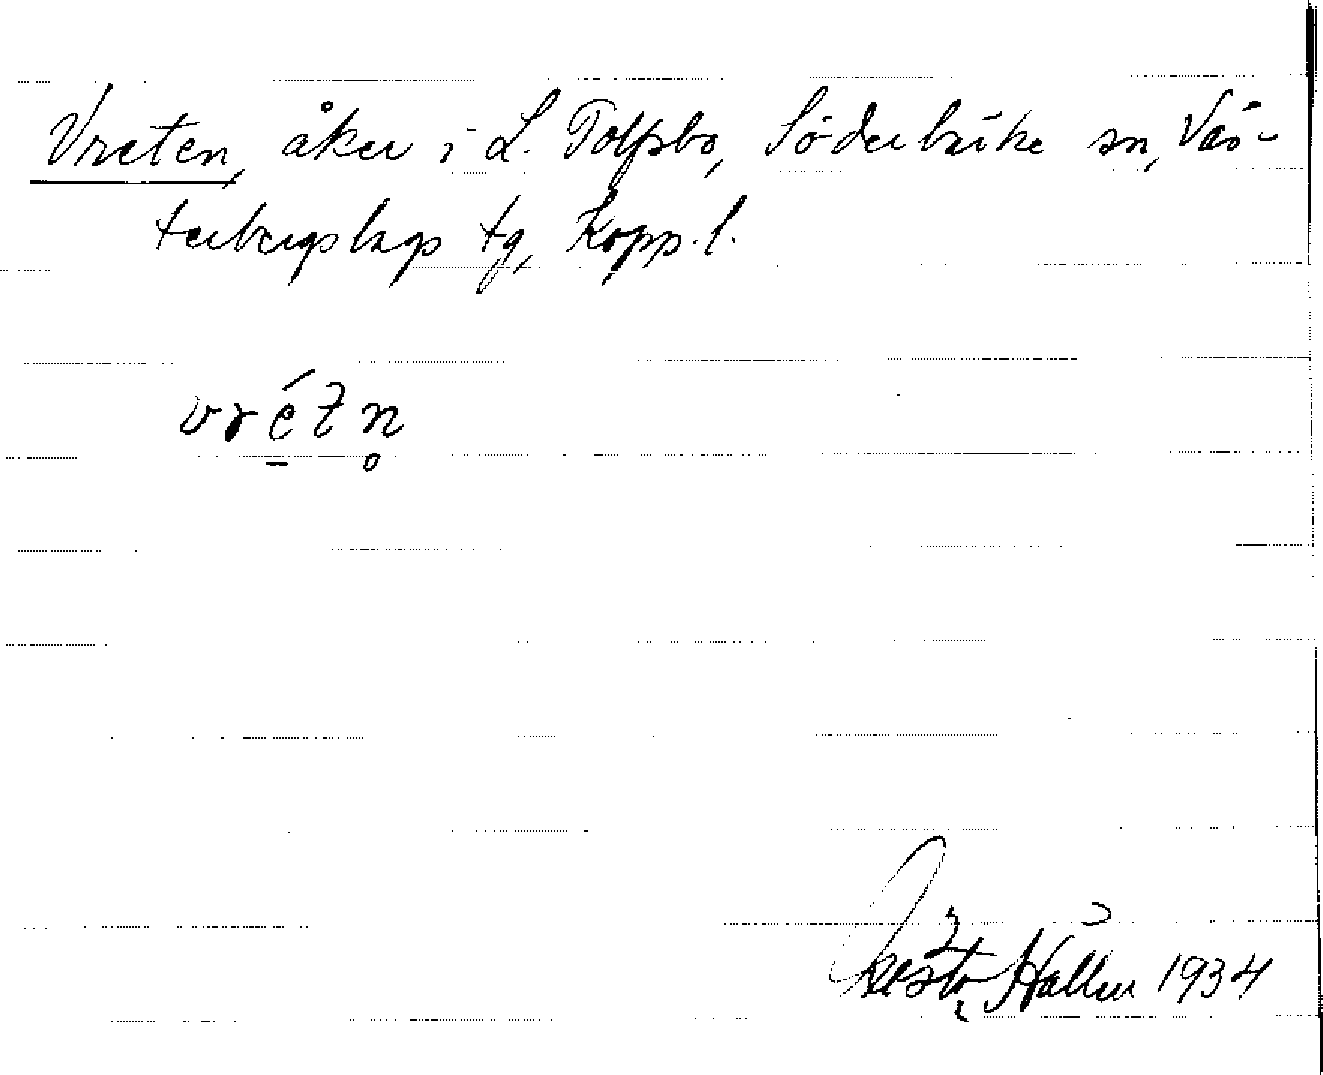 Vreten, åker i L. Tolfsbo, Söderbärke sn, Väs-
terbergslags tg, Kopp. l.
vrétn̥
Gösta Hallen 1934